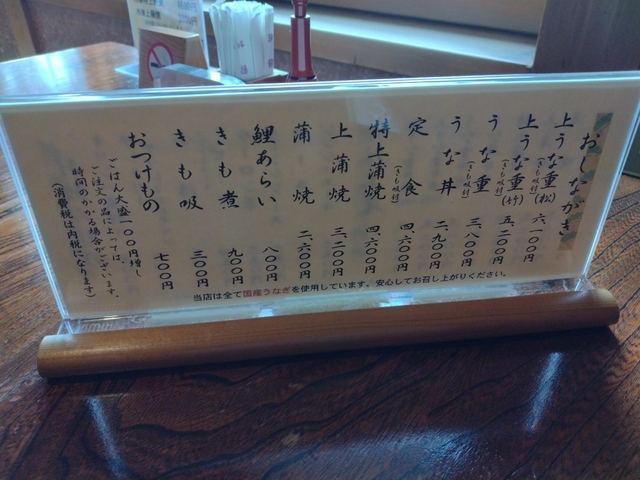 おしながき
上うな重(松) (きも吸付) 六、一〇〇円
上うな重(竹) (きも吸付) 五、二〇〇円
うな重 (きも吸付) 三、八〇〇円
うな丼 二、九〇〇円
定食 (きも吸付) 四、六〇〇円
特上蒲焼 四、六〇〇円
上蒲焼 三、二〇〇円
蒲焼 二、六〇〇円
鯉あらい 八〇〇円
きも煮 九〇〇円
きも吸 三〇〇円
おつけもの 七〇〇円
ごはん大盛一〇〇円増し
ご注文の品によっては、
時間のかかる場合がございます。
(消費税は内税になります)
当店は全て国産うなぎを使用しています。安心してお召し上がりください。